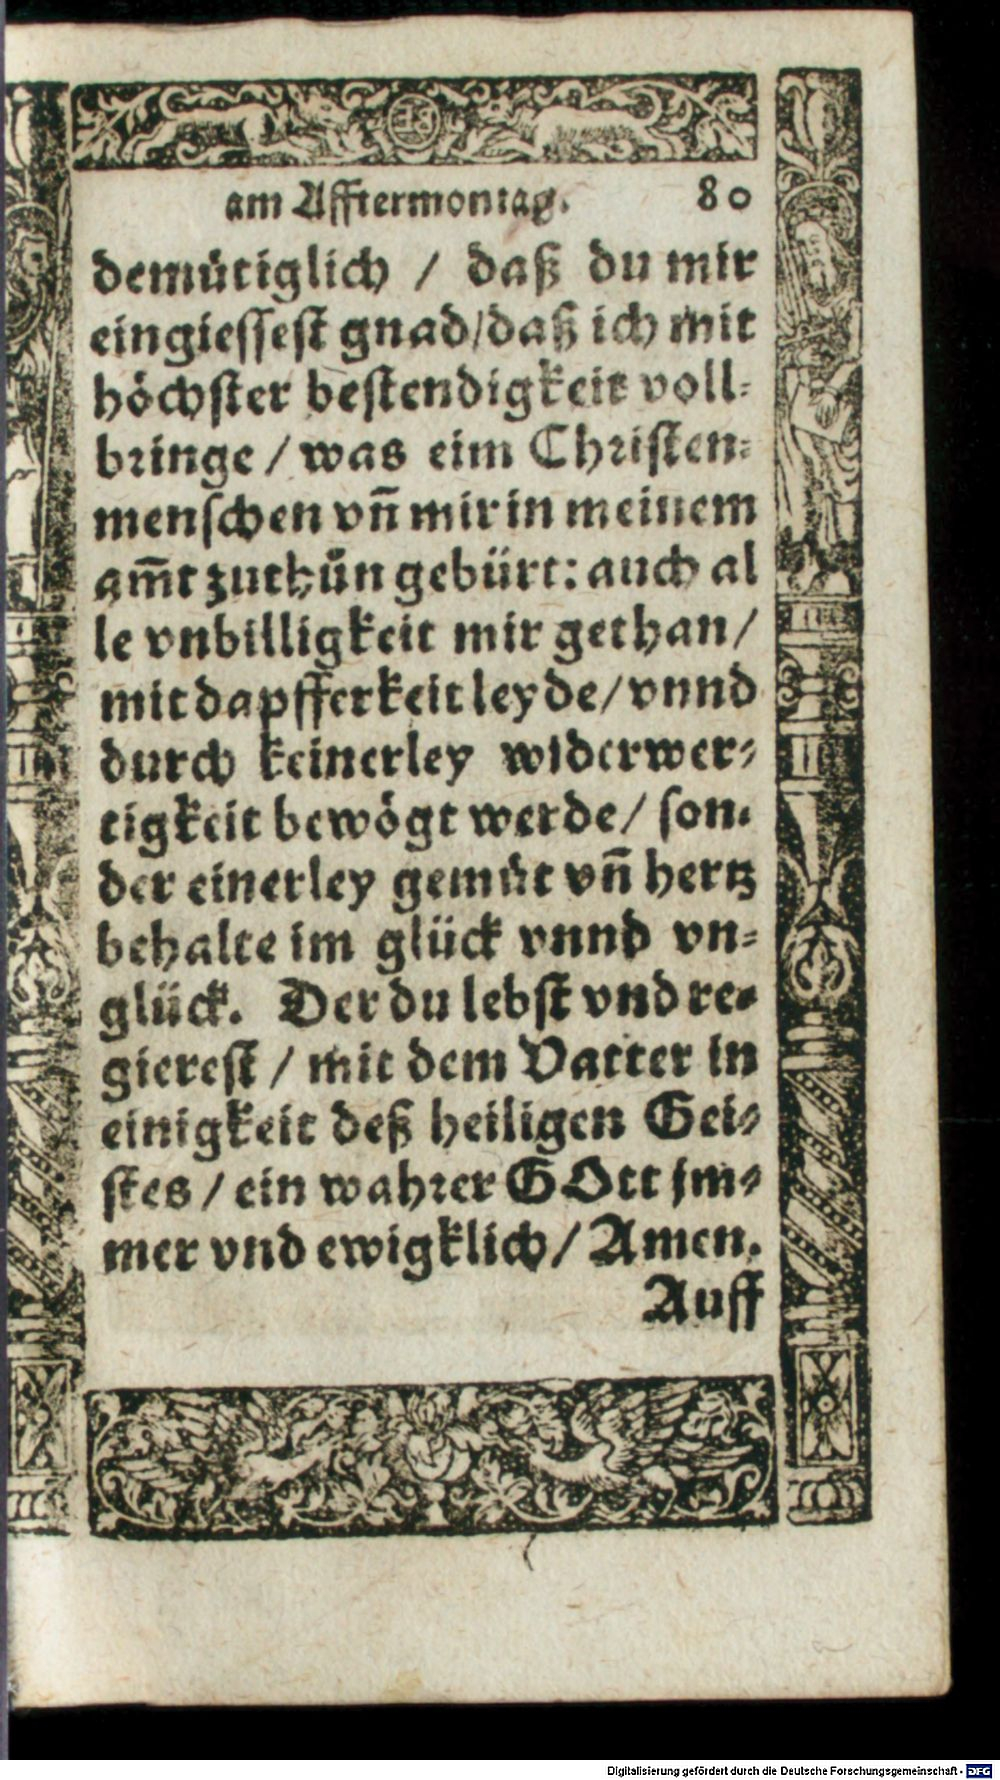 am Afftermontag. 80
demütiglich / daß du mir
eingiessest gnad/daß ich mit
höchster bestendigkeit voll-
bringe / was eim Christen-
menschen vñ mir in meinem
am̄t zuthůn gebürt: auch al
le vnbilligkeit mir gethan/
mit dapfferkeit leyde/vnnd
durch keinerley widerwer-
tigkeit bewögt werde/ son-
der einerley gemüt vñ hertz
behalte im glück vnnd vn-
glück. Der du lebst vnd re-
gierest / mit dem Vatter in
einigkeit deß heiligen Gei-
stes / ein wahrer GOtt jm-
mer vnd ewigklich/ Amen.
Auff
Digitalisierung gefördert durch die Deutsche Forschungsgemeinschaft - DFG